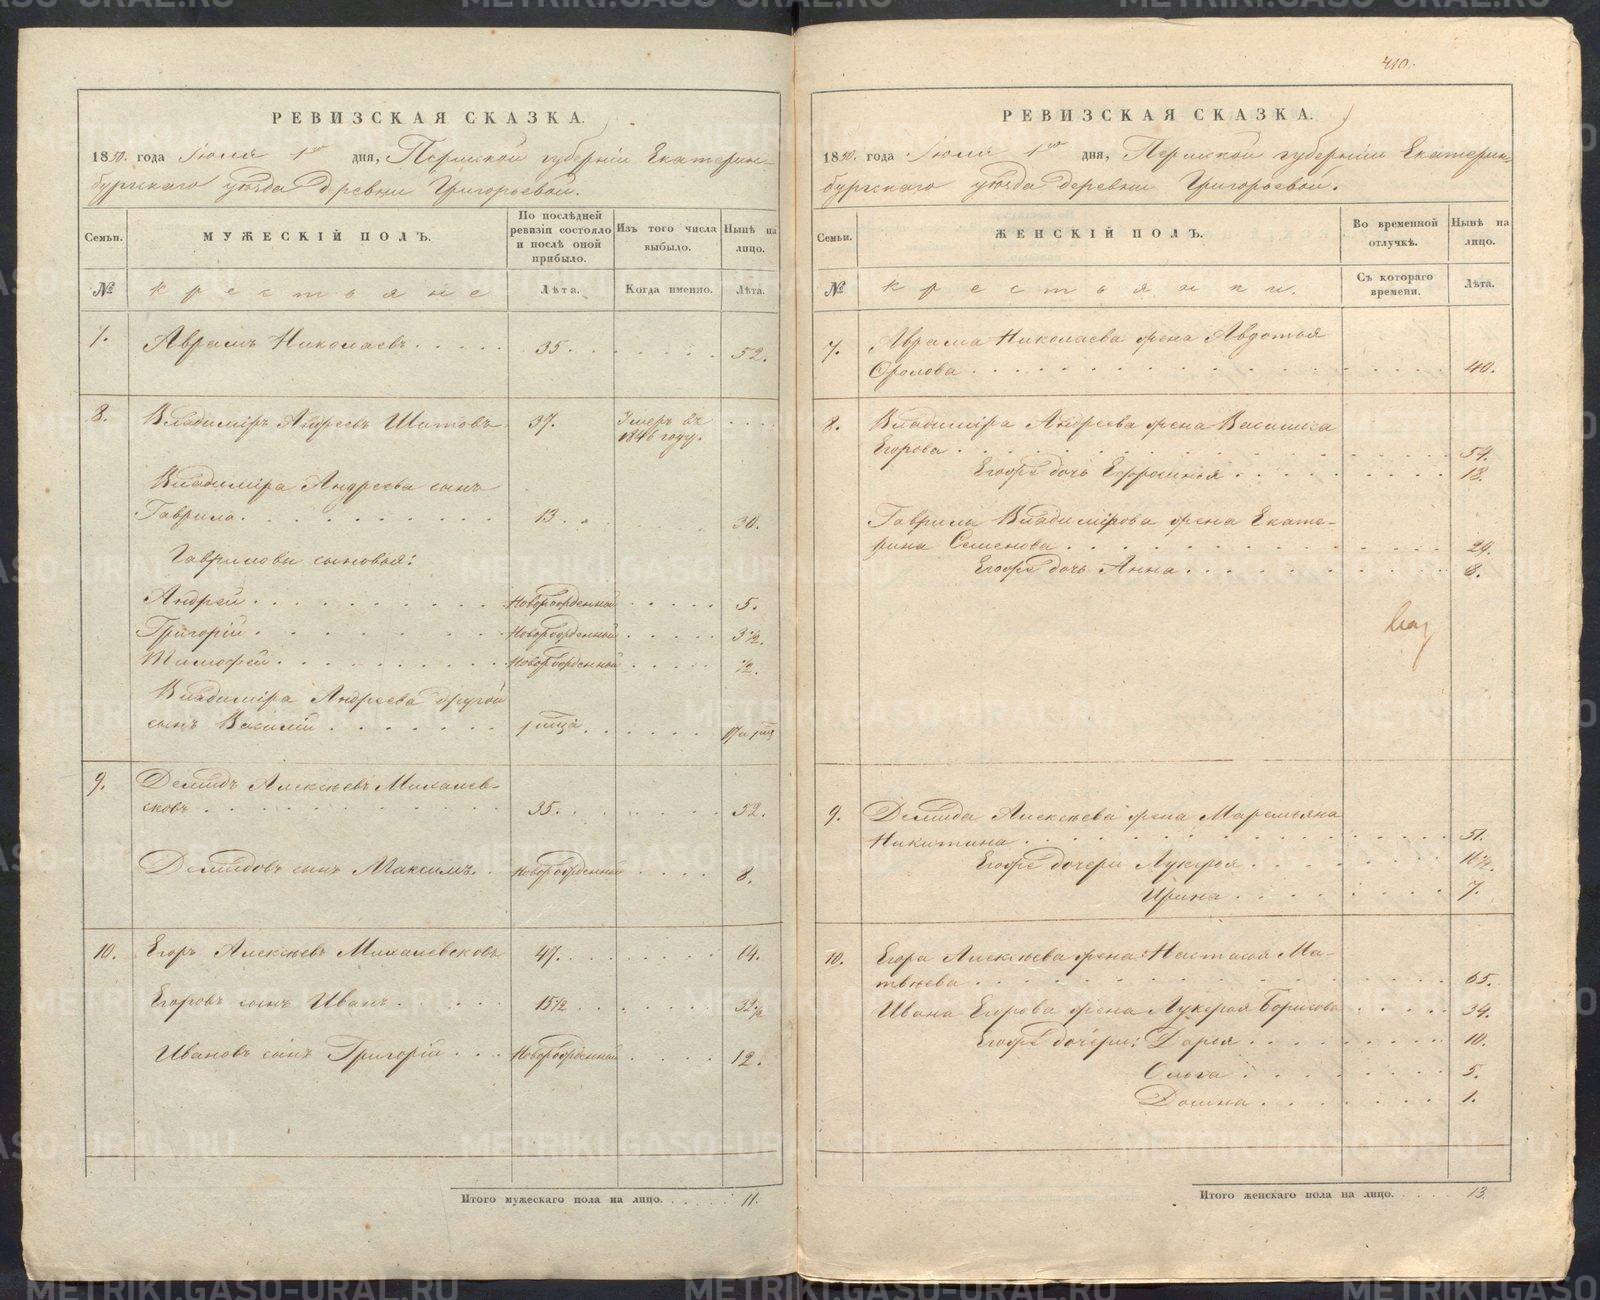 РЕВИЗСКАЯ СКАЗКА.
1850. года Июля 1го дня, Пермской губернiи Екатерин-
бургскаго уѣзда деревни Григорьевой.
Семьи.
МУЖЕСКIЙ ПОЛЪ.
По послѣдней
ревизiи состояло
и послѣ оной
прибыло.
Изъ того числа
выбыло.
Нынѣ на
лицо.
№
крестьяне
Лѣта.
Когда именно.
Лѣта.
7. Аврамъ Николаевъ 35. 52.
8. Владимiръ Андреевъ Шитовъ 37. Умеръ въ
1846 году.
Владимiра Андреева сынъ
Гаврило 13. 30.
Гавриловы сыновья:
Андрей Новорожденный 5.
Григорiй Новорожденный 3 1/2.
Тимофей Новорожденный 1/2.
Владимiра Андреева другой
сынъ Василiй
9. Демидъ Алексѣевъ Михалев-
сковъ 35. 52.
Демидовъ сынъ Максимъ Новорожденный 8.
10. Егоръ Алексѣевъ Михалевсковъ 47. 64.
Егоровъ сынъ Иванъ 15 1/2 32 1/2
Ивановъ сынъ Григорiй Новорожденный 12.
Итого мужескаго пола на лицо. 11.
410.
РЕВИЗСКАЯ СКАЗКА.
1850. года Июля 1го дня, Пермской губернiи Екатерин-
бургскаго уѣзда деревни Григорьевой.
Семьи.
ЖЕНСКIЙ ПОЛЪ.
Во временной
отлучкѣ.
Нынѣ на
лицо.
№
крестьянки.
Съ котораго
времени.
Лѣта.
7. Аврама Николаева жена Авдотья
Фролова 40.
8. Владимiра Андреева жена Василиса
Егорова 54.
Егожъ дочь Ефросинья 18.
Гаврилы Владимiрова жена Екате-
рина Семенова 29.
Егожъ дочь Анна 8.
9. Демида Алексѣева жена Маремьяна
Никитина 51.
Егожъ дочери Лукерья 16 1/2.
Ирина 7.
10. Егора Алексѣева жена Настасья Ма-
твѣева 65.
Ивана Егорова жена Лукерья Борисова 34.
Егожъ дочери: Дарья 10.
Олога 5.
Домна 1.
Итого женскаго пола на лицо. 13.
METRIKI.GASO-URAL.RU